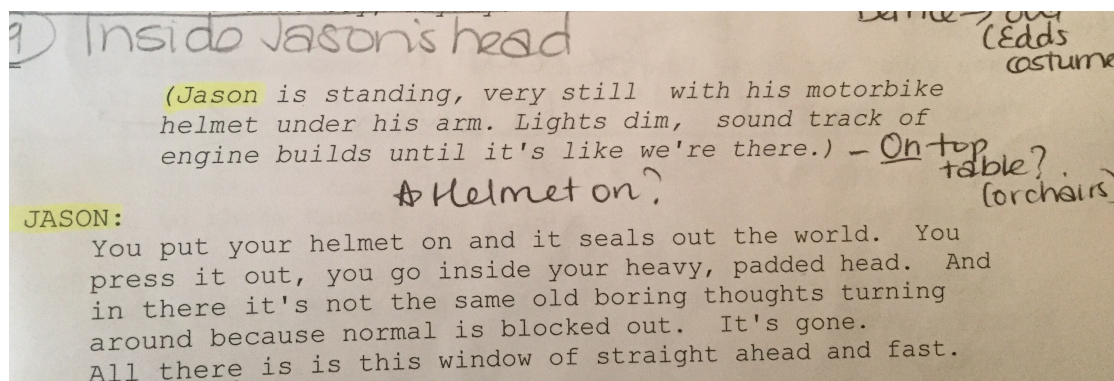 9) Inside Jason's head
(Edds
costume
(Jason is standing, very still with his motorbike
helmet under his arm. Lights dim, sound track of
engine builds until it's like we're there.) – On top
table?
(or chairs)
☆ Helmet on?
JASON:
You put your helmet on and it seals out the world. You
press it out, you go inside your heavy, padded head. And
in there it's not the same old boring thoughts turning
around because normal is blocked out. It's gone.
All there is is this window of straight ahead and fast.